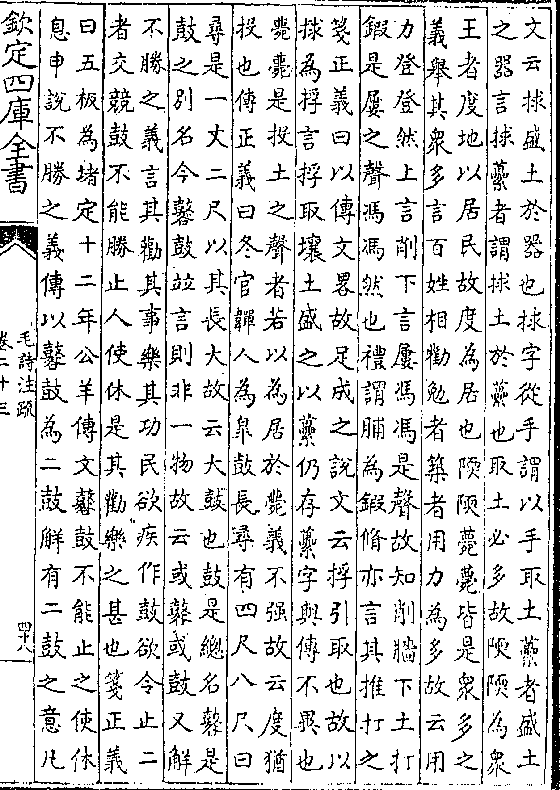 文云捄盛土於器也捄字從手謂以手取土虆者盛土
之器言捄虆者謂捄土於虆也取土必多故陾陾為衆
王者度地以居民故度為居也陾陾薨薨皆是衆多之
義舉其衆多言百姓相勸勉者築者用力為多故云用
力登登然上言削下言屢馮馮是聲故知削牆下土打
鍜是屢之聲馮馮然也禮謂脯為鍜脩亦言其推打之
箋正義曰以傳文畧故足成之說文云捊引取也故以
捄為捊言捊取壤土盛之以虆仍存虆字與傳不異也
薨薨是投土之聲者若以為居於薨義不强故云度猶
投也傳正義曰冬官韗人為臯鼓長尋有四尺八尺曰
尋是一丈二尺以其長大故云大鼓也鼓是緫名鼛是
鼓之別名今鼛鼓竝言則非一物故云或鼛或鼓又解
不勝之義言其勸其事樂其功民欲疾作鼓欲令止二
者交競鼓不能勝止人使休是其勸樂之甚也箋正義
曰五板為堵定十二年公羊傳文鼛鼓不能止之使休
息申說不勝之義傳以鼛鼓為二鼓解有二鼓之意凡
欽定四庫全書
毛詩注疏
卷二十三
四十八